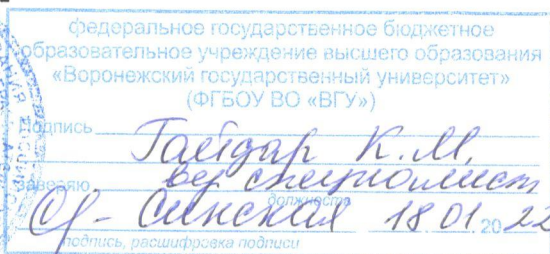 федеральное государственное бюджетное
образовательное учреждение высшего образования
«Воронежский государственный университет»
(ФГБОУ ВО «ВГУ»)
Подпись Гайдар К.М.
заверяю вед специалист
должность
Синская 18 01 2022
подпись, расшифровка подписи